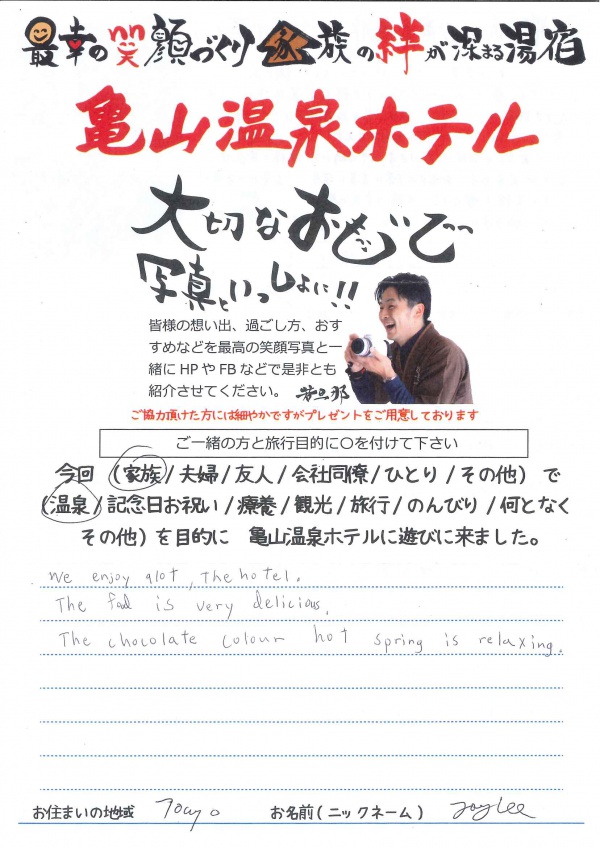 最幸の笑顔づくり家族の絆が深まる湯宿
亀山温泉ホテル
大切なおもいで
写真といっしょに!!
皆様の想い出、過ごし方、おす
すめなどを最高の笑顔写真と一
緒にHPやFBなどで是非とも
紹介させてください。 若旦那
ご協力頂けた方には細やかですがプレゼントをご用意しております
ご一緒の方と旅行目的に〇を付けて下さい
今回 (家族/夫婦/友人/会社同僚/ひとり/その他) で
(温泉/記念日お祝い/療養/観光/旅行/のんびり/何となく
その他) を目的に 亀山温泉ホテルに遊びに来ました。
We enjoy alot, the hotel.
The food is very delicious.
The chocolate colour hot spring is relaxing.
お住まいの地域 Tokyo お名前(ニックネーム) Joy Lee